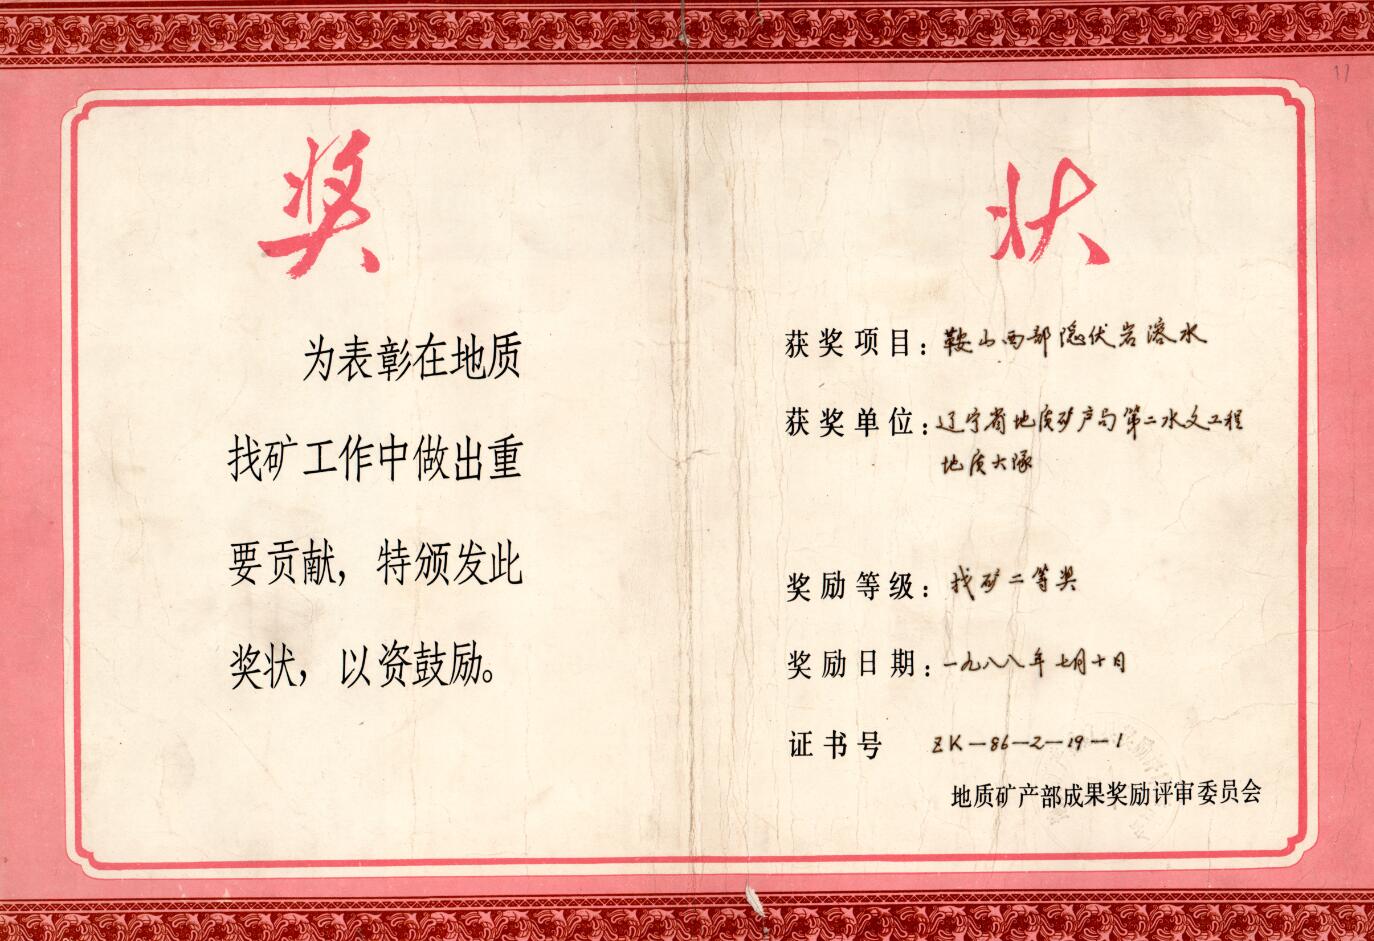 17
奖状
为表彰在地质
找矿工作中做出重
要贡献，特颁发此
奖状，以资鼓励。
获奖项目：鞍山西部隐伏岩溶水
获奖单位：辽宁省地质矿产局第二水文工程
地质大队
奖励等级：找矿二等奖
奖励日期：一九八八年七月十日
证书号 ZK-86-2-19-1
地质矿产部成果奖励评审委员会